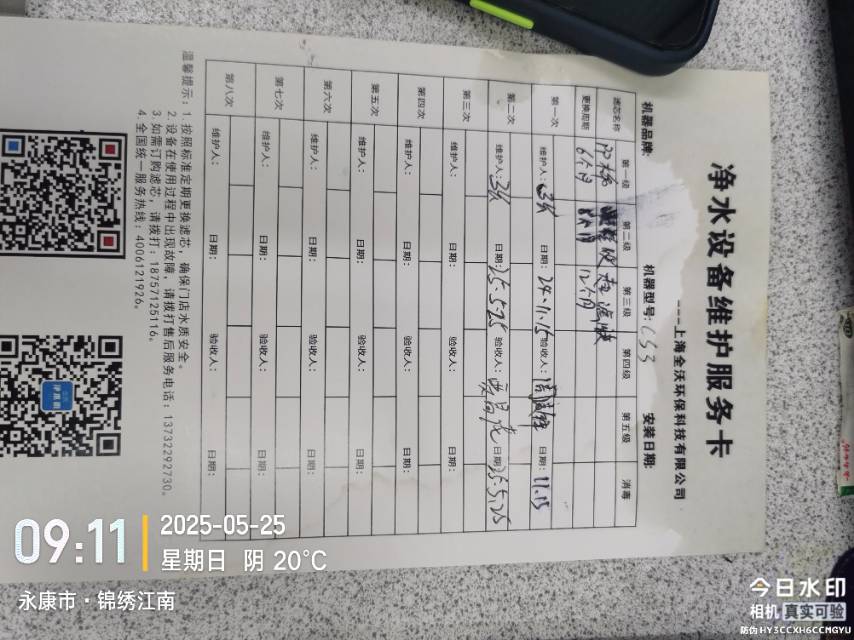 净水设备维护服务卡
---上海全沃环保科技有限公司
机器品牌: 机器型号: CS3 安装日期:
滤芯名称 第一级 第二级 第三级 第四级 第五级 消毒
超滤膜
更换周期 6个月 12个月
第一次 维护人: 日期: 24.11.15 验收人: 日期: 11.15
第二次 维护人: 日期: 25.5.25 验收人: 日期: 25.5.25
第三次 维护人: 日期: 验收人: 日期:
第四次 维护人: 日期: 验收人: 日期:
第五次 维护人: 日期: 验收人: 日期:
第六次 维护人: 日期: 验收人: 日期:
第七次 维护人: 日期: 验收人: 日期:
第八次 维护人: 日期: 验收人: 日期:
温馨提示: 1. 按照标准定期更换滤芯, 确保门店水质安全。
2. 设备在使用过程中出现故障, 请拨打售后服务电话: 13732292730。
3. 如需订购滤芯, 请拨打: 18757125116。
4. 全国统一服务热线: 4006121926。
09:11
2025-05-25
星期日 阴 20°C
永康市·锦绣江南
今日水印
相机 真实可验
防伪 HY3CCXH6CCMGYU